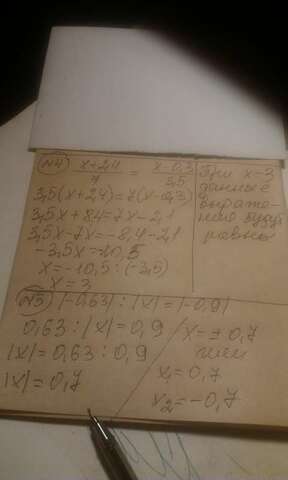 №4) x+2,4 / 7 = x-0,3 / 3,5
3,5(x+2,4)=7(x-0,3)
3,5x+8,4=7x-2,1
3,5x-7x=-8,4-2,1
-3,5x=-10,5
x=-10,5:(-3,5)
x=3
При x=3
данные
выраже-
ния будут
равны
№5) |-0,63| : |x| = |-0,9|
0,63 : |x| = 0,9
|x| = 0,63 : 0,9
|x| = 0,7
x = ± 0,7
или
x₁ = 0,7
x₂ = -0,7